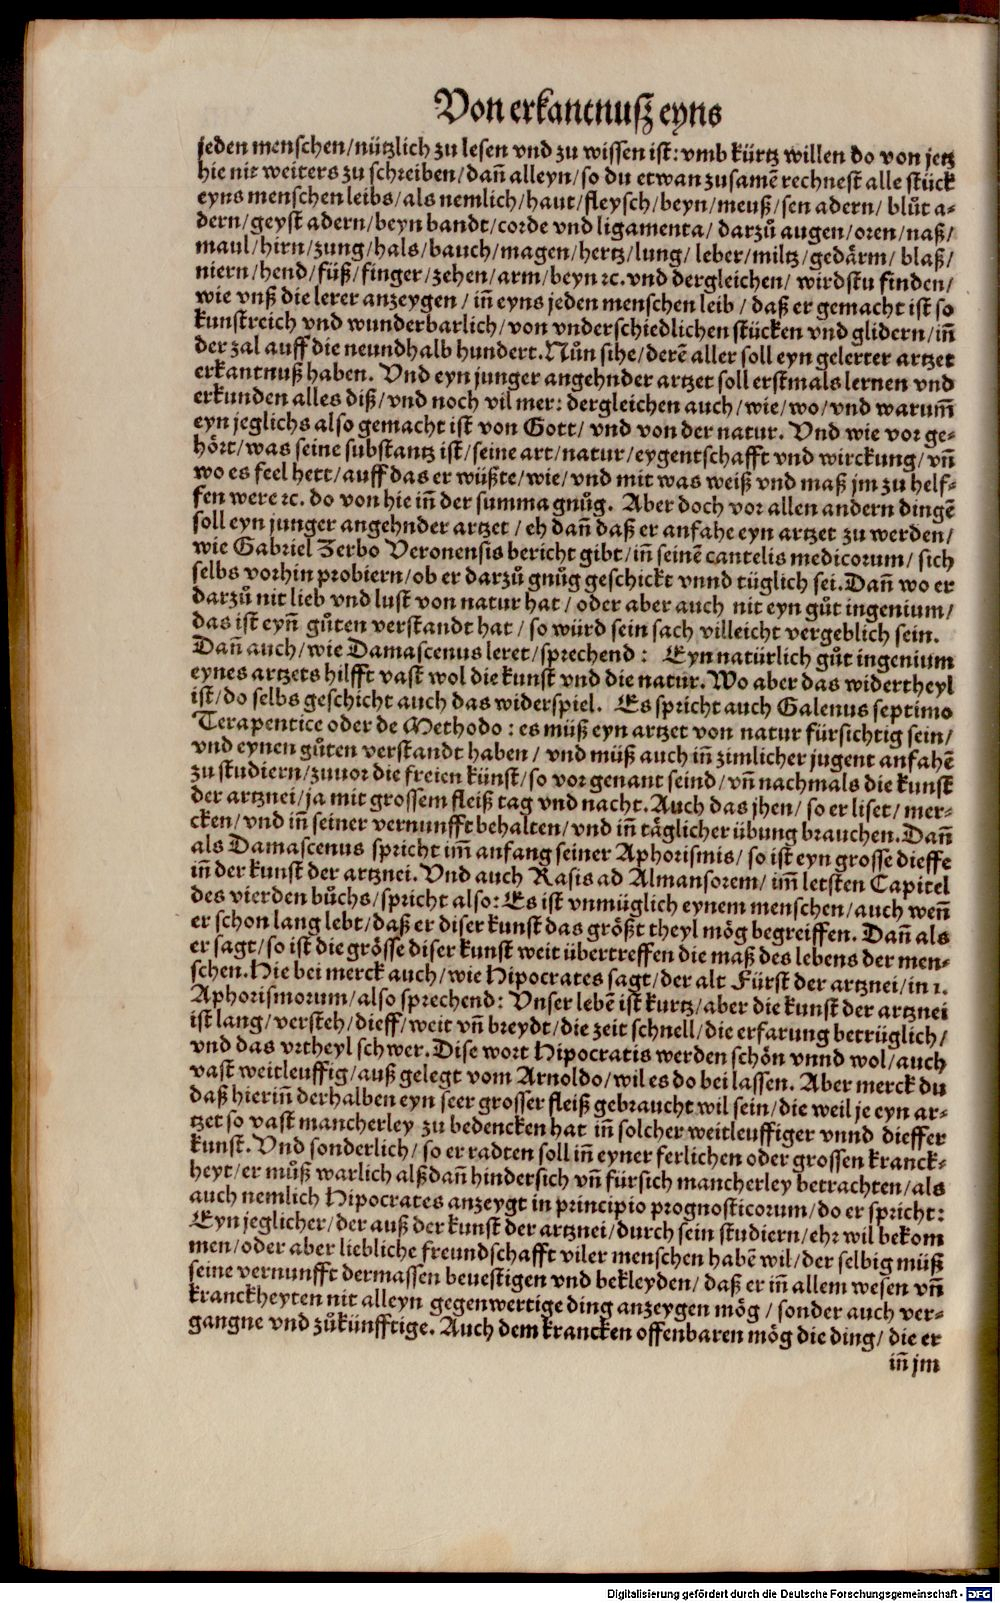 Von erkantnusz eyns
jeden menschen/nützlich zu lesen vnd zu wissen ist: vmb kürtz willen do von jetz
hie nit weiters zu schreiben/dañ alleyn/so du etwan zusamē rechnest alle stück
eyns menschen leibs/als nemlich/haut/fleysch/beyn/meuß/sen adern/ blůt a-
dern/geyst adern/beyn bandt/corde vnd ligamenta/ darzů augen/oren/naß/
maul/hirn/zung/hals/bauch/magen/hertz/lung/ leber/miltz/gedärm/ blaß/
niern/hend/füß/finger/zehen/arm/beyn ꝛc. vnd dergleichen/ wirdstu finden/
wie vnß die lerer anzeygen/ iñ eyns jeden menschen leib/ daß er gemacht ist so
kunstreich vnd wunderbarlich/von vnderschiedlichen stücken vnd glidern/iñ
der zal auff die neundhalb hundert. Nůn sihe/derē aller soll eyn gelerter artzet
erkantnuß haben. Vnd eyn junger angehnder artzet soll erstmals lernen vnd
erkunden alles diß/vnd noch vil mer: dergleichen auch/wie/wo/vnd warum̃
eyn jeglichs also gemacht ist von Gott/ vnd von der natur. Vnd wie vor ge-
hört/was seine substantz ist/seine art/natur/eygentschafft vnd wirckung/vñ
wo es feel hett/auff das er wüßte/wie/vnd mit was weiß vnd maß jm zu helf-
fen were ꝛc. do von hie iñ der summa gnůg. Aber doch vor allen andern dingē
soll eyn junger angehnder artzet/ eh dañ daß er anfahe eyn artzet zu werden/
wie Gabriel Zerbo Veronensis bericht gibt/iñ seinē cantelis medicorum/ sich
selbs vorhin probiern/ob er darzů gnůg geschickt vnnd tüglich sei. Dañ wo er
darzů nit lieb vnd lust von natur hat/ oder aber auch nit eyn gůt ingenium/
das ist eyñ gůten verstandt hat/ so würd sein sach villeicht vergeblich sein.
Dañ auch/wie Damascenus leret/sprechend: Eyn natürlich gůt ingenium
eynes artzets hilfft vast wol die kunst vnd die natur. Wo aber das widertheyl
ist/do selbs geschicht auch das widerspiel. Es spricht auch Galenus septimo
Terapentice oder de Methodo: es müß eyn artzet von natur fürsichtig sein/
vnd eynen gůten verstandt haben/ vnd müß auch iñ zimlicher jugent anfahē
zu studiern/zuuor die freien künst/so vor genant seind/vñ nachmals die kunst
der artznei/ja mit grossem fleiß tag vnd nacht. Auch das jhen/ so er liset/ mer-
cken/vnd iñ seiner vernunfft behalten/vnd iñ täglicher übung brauchen. Dañ
als Damascenus spricht im̃ anfang seiner Aphorismis/ so ist eyn grosse dieffe
iñ der kunst der artznei. Vnd auch Rasis ad Almansorem/ im̃ letsten Capitel
des vierden bůchs/spricht also: Es ist vnmüglich eynem menschen/auch weñ
er schon lang lebt/daß er diser kunst das größt theyl mög begreiffen. Dañ als
er sagt/so ist die grösse diser kunst weit übertreffen die maß des lebens der men-
schen. Hie bei merck auch/wie Hipocrates sagt/der alt Fürst der artznei/in 1.
Aphorismorum/also sprechend: Vnser lebē ist kurtz/aber die kunst der artznei
ist lang/versteh/dieff/weit vñ breydt/die zeit schnell/die erfarung betrüglich/
vnd das vrtheyl schwer. Dise wort Hipocratis werden schön vnnd wol/auch
vast weitleuffig/auß gelegt vom Arnoldo/wil es do bei lassen. Aber merck du
daß hieriñ derhalben eyn seer grosser fleiß gebraucht wil sein/die weil je eyn ar-
tzet so vast mancherley zu bedencken hat iñ solcher weitleuffiger vnnd dieffer
kunst. Vnd sonderlich/so er radten soll iñ eyner ferlichen oder grossen kranck-
heyt/er můß warlich alßdañ hindersich vñ fürsich mancherley betrachten/als
auch nemlich Hipocrates anzeygt in principio prognosticorum/do er spricht:
Eyn jeglicher/der auß der kunst der artznei/durch sein studiern/ehr wil bekom
men/oder aber liebliche freundschafft viler menschen habē wil/der selbig müß
seine vernunfft dermassen beuestigen vnd bekleyden/ daß er iñ allem wesen vñ
kranckheyten nit alleyn gegenwertige ding anzeygen mög/ sonder auch ver-
gangne vnd zůkünfftige. Auch dem krancken offenbaren mög die ding/ die er
iñ jm
Digitalisierung gefördert durch die Deutsche Forschungsgemeinschaft - DFG